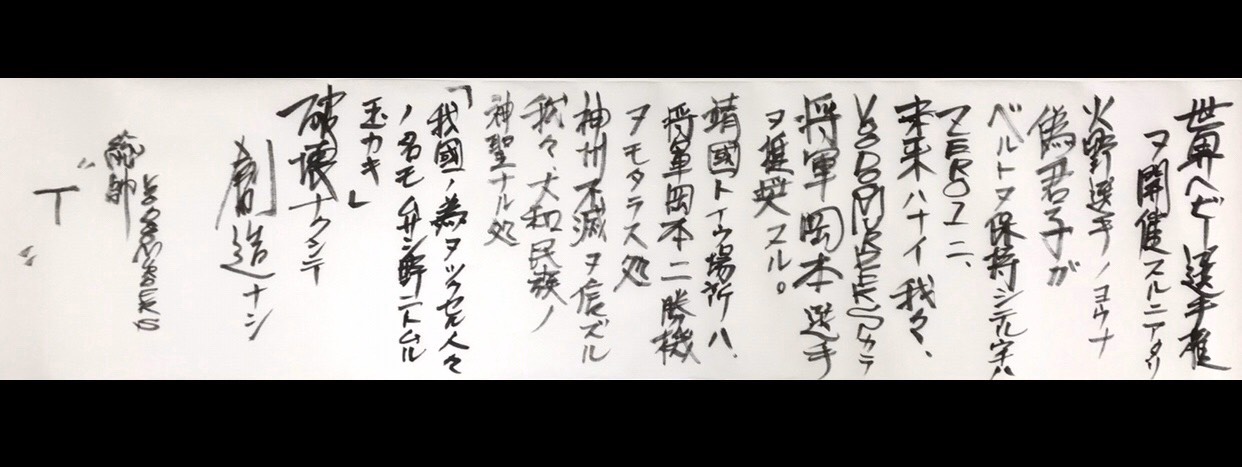 世界ヘビー選手権
ヲ開催スルニアタリ
火野選手ノヨウナ
偽君子が
ベルトヲ保持シテル内ハ
ZERO1ニ、
未来ハナイ我々、
VOODOMURDERSカラ
将軍岡本選手
ヲ推挙スル。
靖國トイウ場所ハ、
将軍岡本ニ勝機
ヲモタラス処
神州不滅ヲ信ズル
我々、大和民族ノ
神聖ナル処
「我國ノ為ヲツクセル人々
ノ名モムサシ野ニトムル
玉カキ」
破壊ナクシテ
創造ナシ
総帥
T